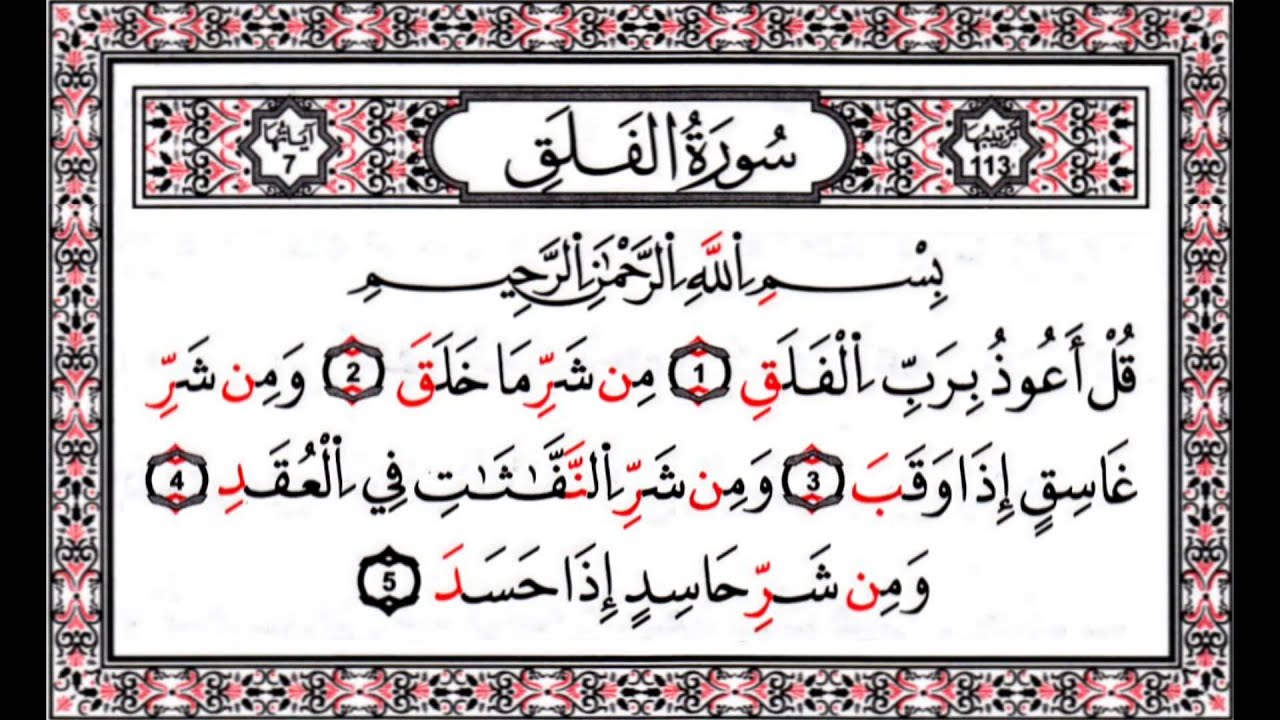 ترتيبها 113
سُورَةُ الفَلَقِ
آيَاتُهَا 7
بِسْمِ اِللَّهِ اِلرَّحْمَٰنِ اِلرَّحِيمِ
قُلْ أَعُوذُ بِرَبِّ اِلْفَلَقِ 1 مِن شَرِّ مَا خَلَقَ 2 وَمِن شَرِّ
غَاسِقٍ إِذَا وَقَبَ 3 وَمِن شَرِّ اِلنَّفَّٰثَٰتِ فِي اِلْعُقَدِ 4
وَمِن شَرِّ حَاسِدٍ إِذَا حَسَدَ 5